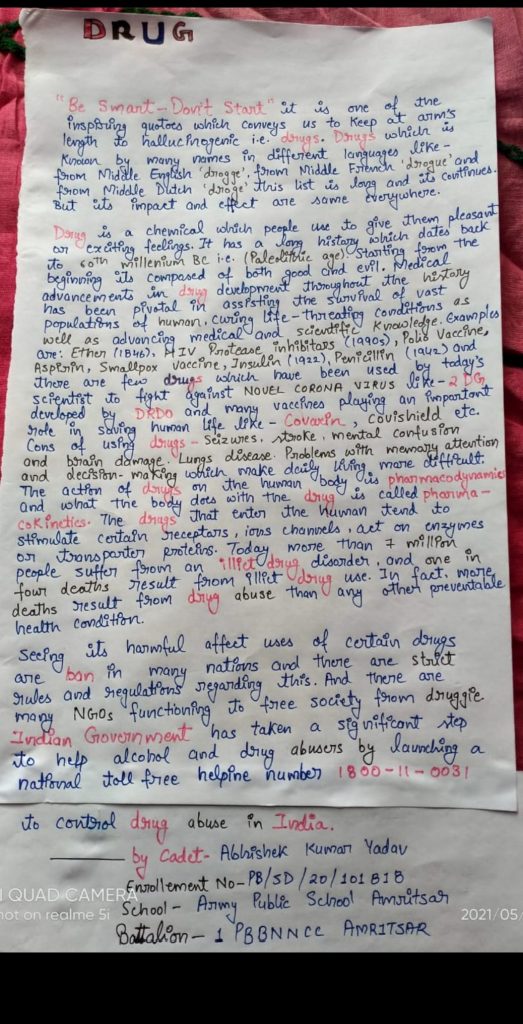 DRUG
"Be Smart - Don't Start" it is one of the
inspiring quotoes which conveys us to keep at arm's
length to hallucinogenic i.e. drugs. Drugs which is
known by many names in different languages like -
from Middle English 'drogge', from Middle French 'drogue' and
from Middle Dutch 'droge' this list is long and its continues.
But its impact and effect are same everywhere.
Drug is a chemical which people use to give them pleasant
or exciting feelings. It has a long history which dates back
to 60th millenium BC i.e. (Paleolithic age) Starting from the
beginning its composed of both good and evil. Medical
advancements in drug development throughout the history
has been pivotal in assisting the survival of vast
populations of human, curing life-threating conditions as
well as advancing medical and scientific knowledge. Examples
are: Ether (1846), HIV Protease inhibitors (1990s), Polio Vaccine,
Aspirin, Smallpox vaccine, Insulin (1922), Penicillin (1942) and
there are few drugs which have been used by today's
scientist to fight against NOVEL CORONA VIRUS like - 2 DG
developed by DRDO and many vaccines playing an important
role in saving human life like - Covaxin, covishield etc.
Cons of using drugs - Seizures, stroke, mental confusion
and brain damage. Lungs disease. Problems with memory, attention
and decision-making which make daily living more difficult
The action of drugs on the human body is pharmacodynamics
and what the body does with the drug is called pharma-
cokinetics. The drugs that enter the human tend to
stimulate certain receptors, ions channels, act on enzymes
or transporter proteins. Today more than 7 million
people suffer from an illict drug disorder, and one in
four deaths result from illict drug use. In fact, more
deaths result from drug abuse than any other preventable
health condition.
Seeing its harmful affect uses of certain drugs
are ban in many nations and there are strict
rules and regulations regarding this. And there are
many NGOs functioning to free society from druggie
Indian Government has taken a significant step
to help alcohol and drug abusers by launching a
national toll free helpine number 1800-11-0031
to control drug abuse in India.
by Cadet - Abhishek Kumar Yadav
Enrollement No - PB/SD/20/101818
School - Army Public School Amritsar
Battalion - 1 PBBNNCC AMRITSAR
I QUAD CAMERA
hot on realme 5i
2021/05/